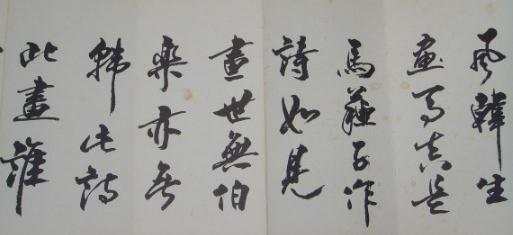 風韓生
畫馬真是
馬蘇子作
詩如見
畫世無伯
樂亦無
韓此詩
此畫誰